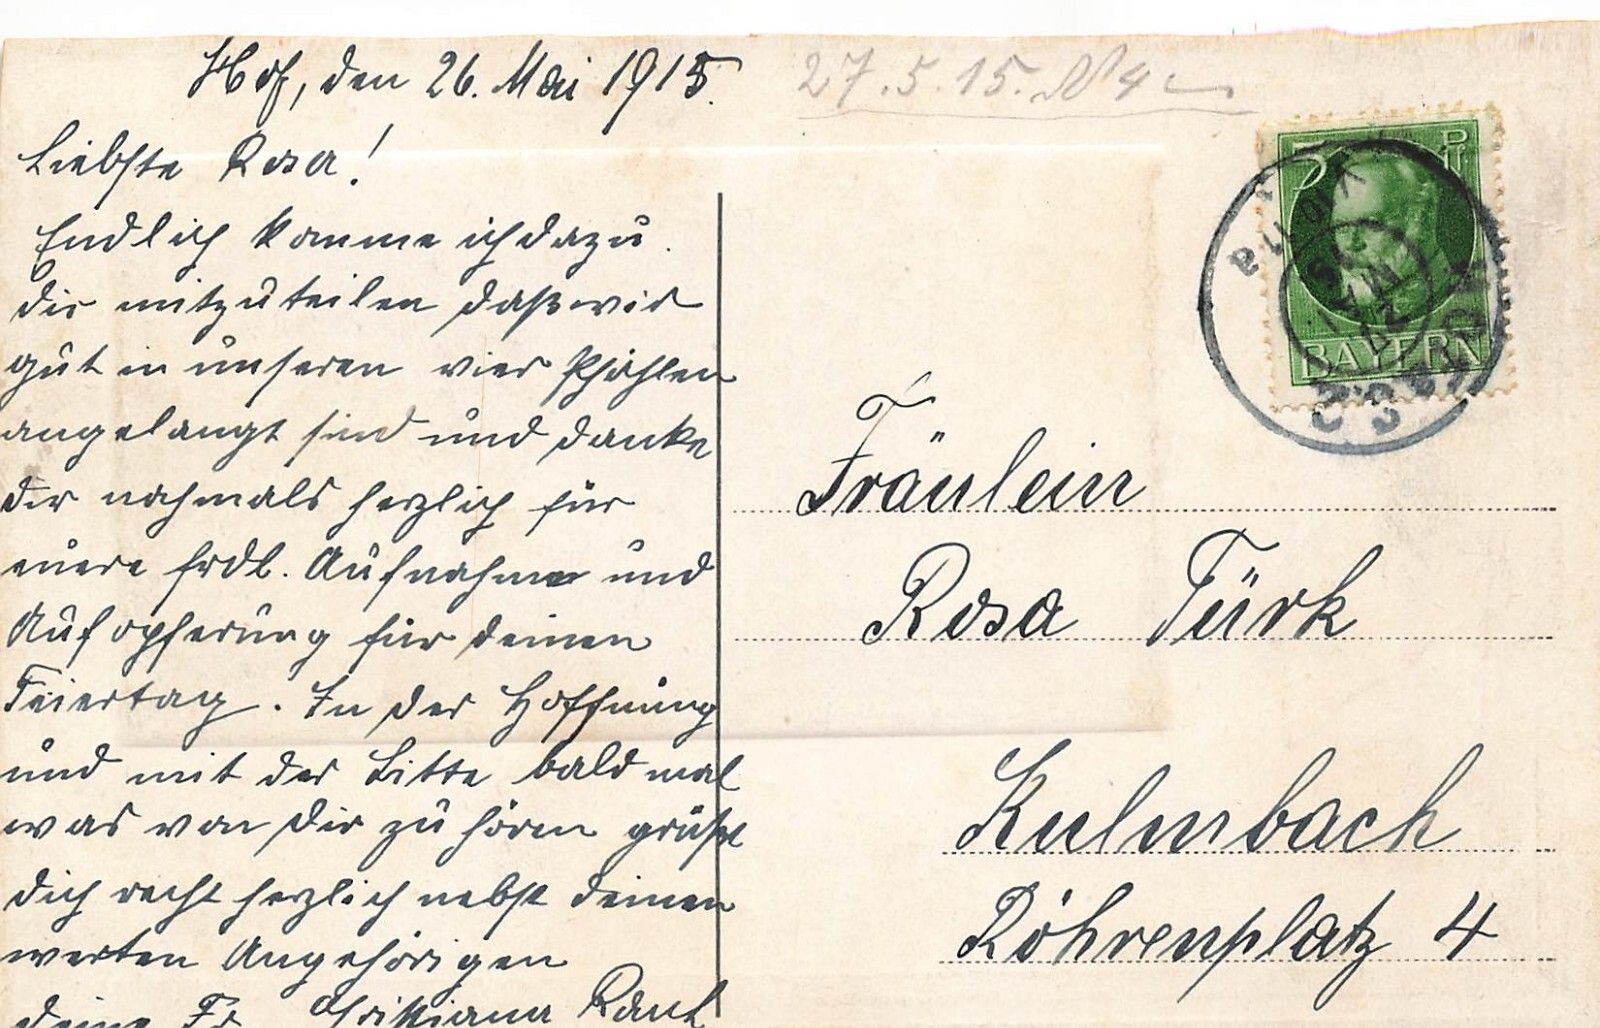 Hof, den 26. Mai 1915.
27.5.15.
Liebste Rosa!
Endlich komme ich dazu
dir mitzuteilen daß wir
gut in unseren vier Pfählen
angelangt sind und danke
dir nochmals herzlich für
euere frdl. Aufnahme und
Aufopferung für deinen
Feiertag. In der Hoffnung
und mit der Bitte bald mal
was von dir zu hören grüßt
dich recht herzlich nebst deinen
werten Angehörigen
deine Fr. Christiana
5 Pf
BAYERN
Fräulein
Rosa Türk
Kulmbach
Röhrenplatz 4